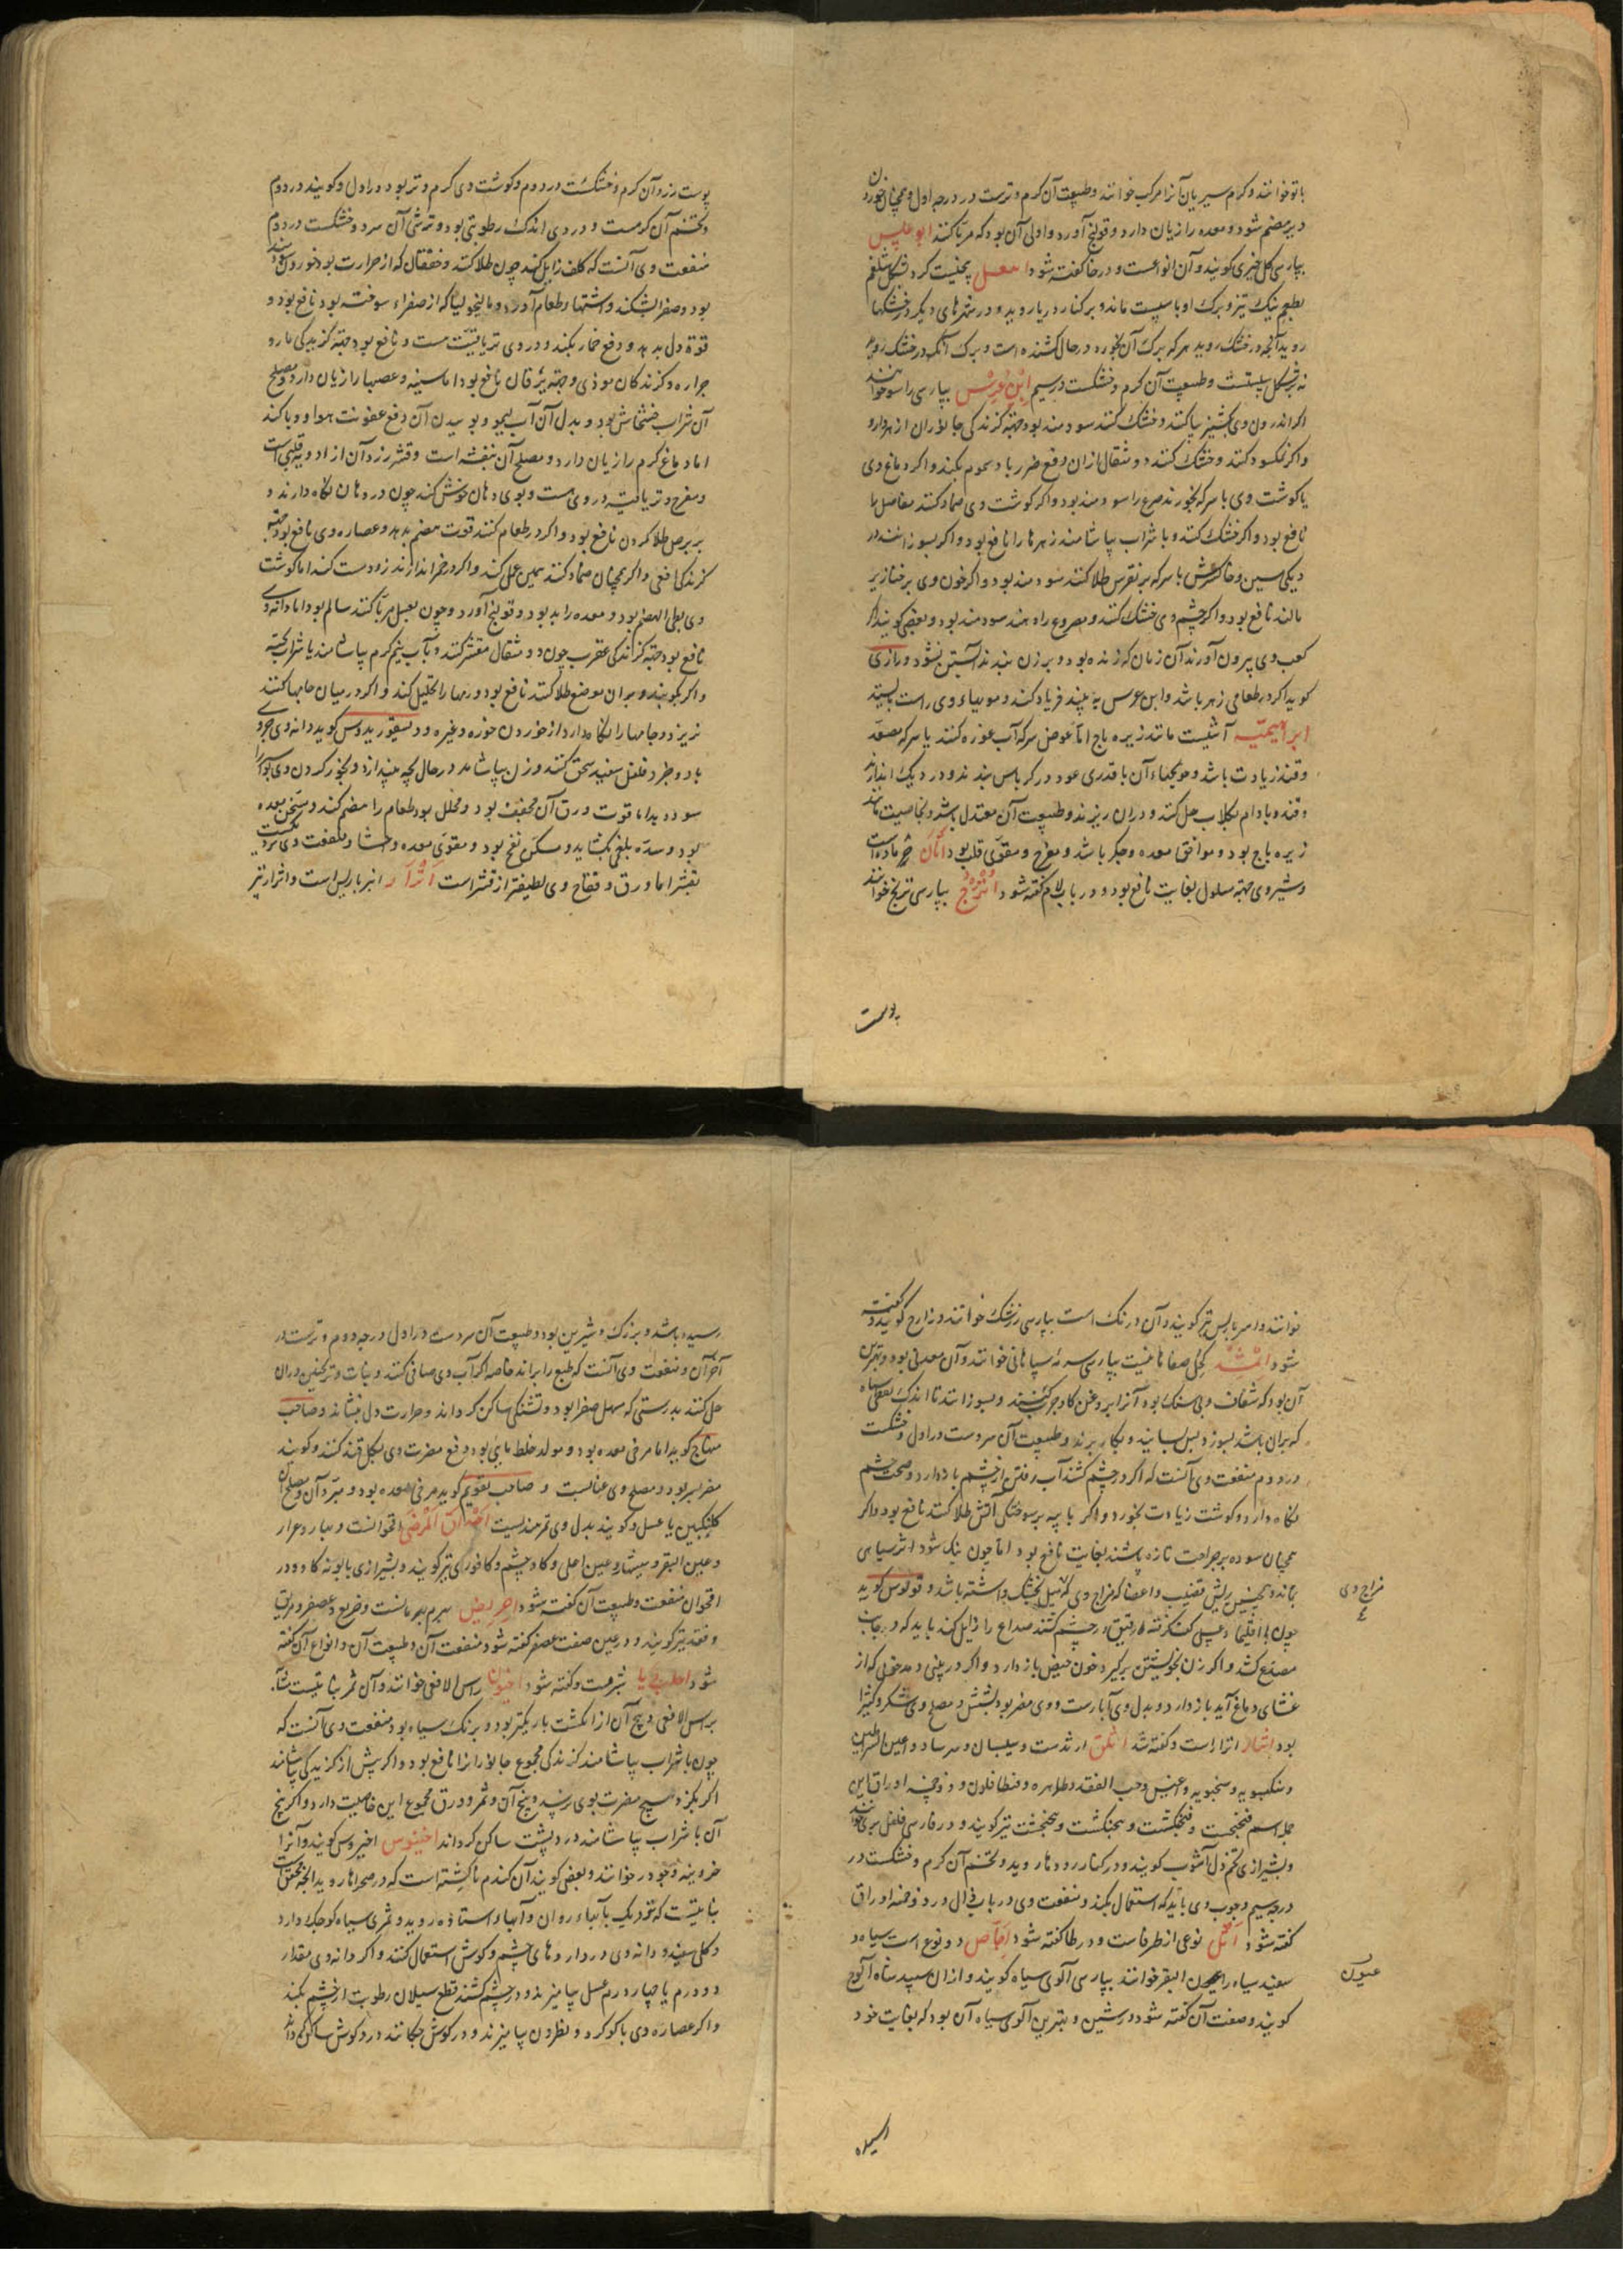 باتو خوانند و کرم سیریان آنرا مرکب خوانند و طبیعت آن کرم و ترست در درجه اول و همچنان خورد
دیر هضم شود و معده را زیان دارد و قولنج آورد و اولی آن بود که مربا کنند ابو علیس
بپارسی کل خیری کویند و آن انواعست و در خا کفته شود پخیست کرد بشکل شلغم
بطعم نیک تیز و برک او با سپست ماند و بر کنار دریا روید و در شهرهای دیکر در خشکیها
روید آنچه در خشک روید هر که برک آن بخورد در حال کشنده است و برک آنک در خشک روید
نه بر شکل سپستست و طبیعت آن کرم و خشکست در سیم ابن عرس بپارسی راسو خوانند
اکر اندرون وی بکشنیز پا کنند و خشک کنند سودمند بود جهته کزندکی جانوران از هر دارو
واکر نمکسود کنند و خشک کنند دو مثقال ازان دفع ضرر باد سموم بکند واکر دماغ وی
یا کوشت وی با سرکه بخورند صرع را سودمند بود واکر کوشت وی ضماد کنند مفاصل را
نافع بود واکر خشک کنند و با شراب بیاشامند زهرها را نافع بود واکر بسوزانند در
دیکی مسین و خاکسترش با سرکه بر نقرس طلا کنند سودمند بود واکر خون وی بر خنازیر
مالند نافع بود واکر چشم وی خشک کنند و مصروع را دهند سودمند بود و بعضی کویند اکر
کعب وی بیرون آورند آن زمان که زنده بود و بر زن بندند آبستن نشود و رازی
کوید اکر در طعامی زهر باشد و ابن عرس به بیند فریاد کند و مویهاء وی راست بایستد
ابراهیمیه آشیست مانند زیره باج اما عوض سرکه آب غوره کنند یا سرکه مصعد
و قند زیادت باشد و حویجهاء آن با قدری عود در کرباس بندند و در دیک اندازند
و قند و بادام بکلاب حل کنند و دران ریزند و طبیعت آن معتدل باشد و بخاصیت مانند
زیره باج بود و موافق معده و جکر باشد و مفرح و مقوی قلب بود اتان خر ماده است
و شیر وی جهته مسلول بغایت نافع بود و در باب لام کفته شود اترج بپارسی ترنج خوانند
پوست
پوست زرد آن کرم و خشکست در دوم و کوشت وی کرم و تر بود در اول و کویند در دوم
و تخم آن کرمست و در وی اندک رطوبتی بود و ترشی آن سرد و خشکست در دوم
منفعت وی آنست که کلف زایل کند چون طلا کنند و خفقان که از حرارت بود خوردن سودمند
بود و صفرا بشکند و اشتهاء طعام آورد و مالیخولیا که از صفراء سوخته بود نافع بود و
قوة دل بدهد و دفع خمار بکند و در وی تریاقیت هست و نافع بود جهته کزیدکی مار و
جراره و کزندکان موذی و جهته یرقان نافع بود اما سینه و عصبها را زیان دارد و مصلح
آن شراب خشخاش بود و بدل آن آب لیمو و بوییدن آن دفع عفونت هوا و وبا کند
اما دماغ کرم را زیان دارد و مصلح آن بنفشه است و قشر زرد آن از ادویه قلبی است
و مفرح و تریاقیت در وی هست و بوی دهان خوش کند چون در دهان نکاه دارند و
بر برص طلا کردن نافع بود و اکر در طعام کنند قوت هضم بدهد و عصاره وی نافع بود جهته
کزندکی افعی و اکر همچنان ضماد کنند همین عمل کند واکر در خمر اندازند زود مست کند اما کوشت
وی بطی الهضم بود و معده را بد بود و قولنج آورد و چون بعسل مربا کنند سالم بود اما دانه وی
نافع بود جهته کزندکی عقرب چون دو مثقال مقشر کنند و بآب نیم کرم بیاشامند یا شراب پخته
واکر بکوبند و بران موضع طلا کنند نافع بود و ورمها را تحلیل کند و اکر در میان جامها کنند
نریزد و جامها را نکاه دارد از خوردن خوره و غیره و دیسقوریدوس کوید دانه وی جزوی
با دو جزو فلفل سفید سحق کنند و زن بیاشامد در حال بچه بیندازد و بخور کردن وی بواسیر را
سود دهد اما قوت ورق آن مجفف بود و محلل بود طعام را هضم کند و سخن معده
بود و سده بلغمی بکشاید و مسکن نفخ بود و مقوی معده و احشا و منفعت وی نزدیکست
بقشر اما ورق و فقاح وی لطیفتر از قشر است اثرار انبرباریس است و اترار نیز
خوانند و امبرباریس نیز کویند و آن در نک است بپارسی زرشک خوانند و زارج کویند و کفته
شود اثمد کحل صفاهانیست بپارسی سرمه سپاهانی خوانند و آن معدنی بود و بهترین
آن بود که شفاف و بی سنک بود آنرا بروغن کاو چرب کنند و بسوزانند تا اندک بعضی سیاه
که بران باشد بسوزد پس بسایند و بکار برند و طبیعت آن سردست در اول و خشکست
در دوم منفعت وی آنست که اکر در چشم کشند آب رفتن از چشم باز دارد و صحت چشم
نکاه دارد و کوشت زیادت بخورد و اکر با پیه بر سوختکی آتش طلا کنند نافع بود واکر
همچنان سوده بر جراحت تازه پاشند بغایت نافع بود اما چون نیک شود اثر سیاهی
بماند و همچنین ریش قضیب و اعضا که مزاج وی که میل بخشکی داشته باشد و قولوس کوید
مزاج وی
چون با اقلیمیا و عسل کف کرفته رقیق در چشم کشند صداع را زایل کند باید که در جانب
مصدع کشد و اکر زن بخویشتن برکیرد خون حیض باز دارد و اکر در بینی دمد خونی که از
غشای دماغ آید باز دارد و بدل وی آبارست و وی مضر بود بشش و مصلح وی شکر و کتیرا
بود اثرار اترار است و کفته شد اثلق ارثدست و سیسبان و
و حب الفقد و طاهره و فنطافلون و ذو خمسه اوراق این
جمله اسم فنجنکشت و پنجنکشت و پنجنکشت نیز کویند و در فارسی فلفل بری خوانند
و بشیرازی تخم دل آشوب کویند و در کنار رودها روید و تخم آن کرم و خشکست در
درجه سیم و چوب وی باید که استعمال بکند و منفعت وی در باب ذال در ذو خمسه اوراق
کفته شود اثل نوعی از طرفاست و در طا کفته شود اجاص دو نوع است سیاه و
سفید سیاه را عیون البقر خوانند بپارسی آلوی سیاه کویند و ازان سپید شاه آلوج
عیون
کویند و صفت آن کفته شود در شین و بهترین آلوی سیاه آن بود که بغایت خود
رسیده باشد و بزرک و شیرین بود و طبیعت آن سردست در اول درجه دوم و ترست در
آخر آن و منفعت وی آنست که طبع را براند خاصه اکر آب وی صافی کنند و نبات و ترنجبین دران
حل کنند بدرستی که مسهل صفرا بود و تشنکی ساکن کرداند و حرارت دل بنشاند و صاحب
منهاج کوید اما مرخی معده بود و مولد خلط مایی بود و دفع مضرت وی بکل قند کنند و کویند
مضر بود و مصلح وی عنابست و صاحب تقویم کوید مرخی معده بود و مبرد آن و مصلح آن
کلنکبین یا عسل و کویند بدل وی تمرهندیست احداق المرضی اقحوانست و بهار و عرار
و عین البقر و عین اعلی و کاوچشم و کافوری نیز کویند و بشیرازی بابونه کاو و در
اقحوان منفعت و طبیعت آن کفته شود احریض بهرم بهرمانست و خریع و عصفر و مریق
و نقد نیز کویند و در عین صفت عصفر کفته شود منفعت آن و طبیعت آن و انواع آن کفته
شود بشرهست و کفته شود اخیون راس الافعی خوانند و آن ثمر نباتیست مشابه
براس الافعی و بیخ آن از انکشت باریکتر بود و برنک سیاه بود منفعت وی آنست که
چون با شراب بیاشامند کزندکی مجموع جانورانرا نافع بود واکر پیش از کزیدکی بیاشامند
اکر بکزد هیچ مضرت بوی نرسد و بیخ آن و ثمر و ورق مجموع این خاصیت دارد واکر بیخ
آن با شراب بیاشامند درد پشت ساکن کرداند اخینوس اخیروس کویند و آنرا
خوانند و بعضی کویند آن کندم ناکشته است که در صحراها روید آنچه محقق است
نباتیست که نزدیک بآبهاء روان و آبهاء استاده روید و ثمری سیاه کوچک دارد
و کلی سفید و دانه وی در داروهای چشم و کوش استعمال کنند و اکر دانه وی مقدار
دو درم با چهار درم عسل بیامیزند و در چشم کشند قطع سیلان رطوبت از چشم بکند
واکر عصاره وی با کوکرد و نطرون بیامیزند و در کوش چکانند درد کوش ساکن کرداند